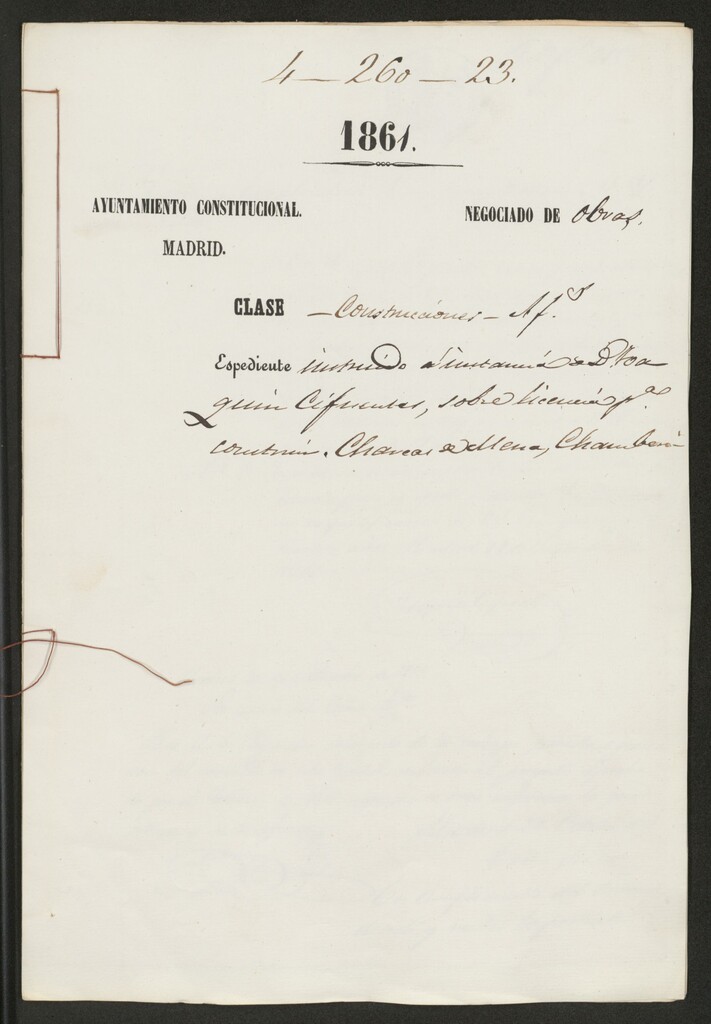 4 — 260 — 23.
1861.
AYUNTAMIENTO CONSTITUCIONAL.
MADRID.
NEGOCIADO DE obras.
CLASE — Construcciones — Af.s
Espediente instruido á instancia de D. Joa
quin Cifuentes, sobre licencia p.a
construir. Charcas de Mena, Chamberí